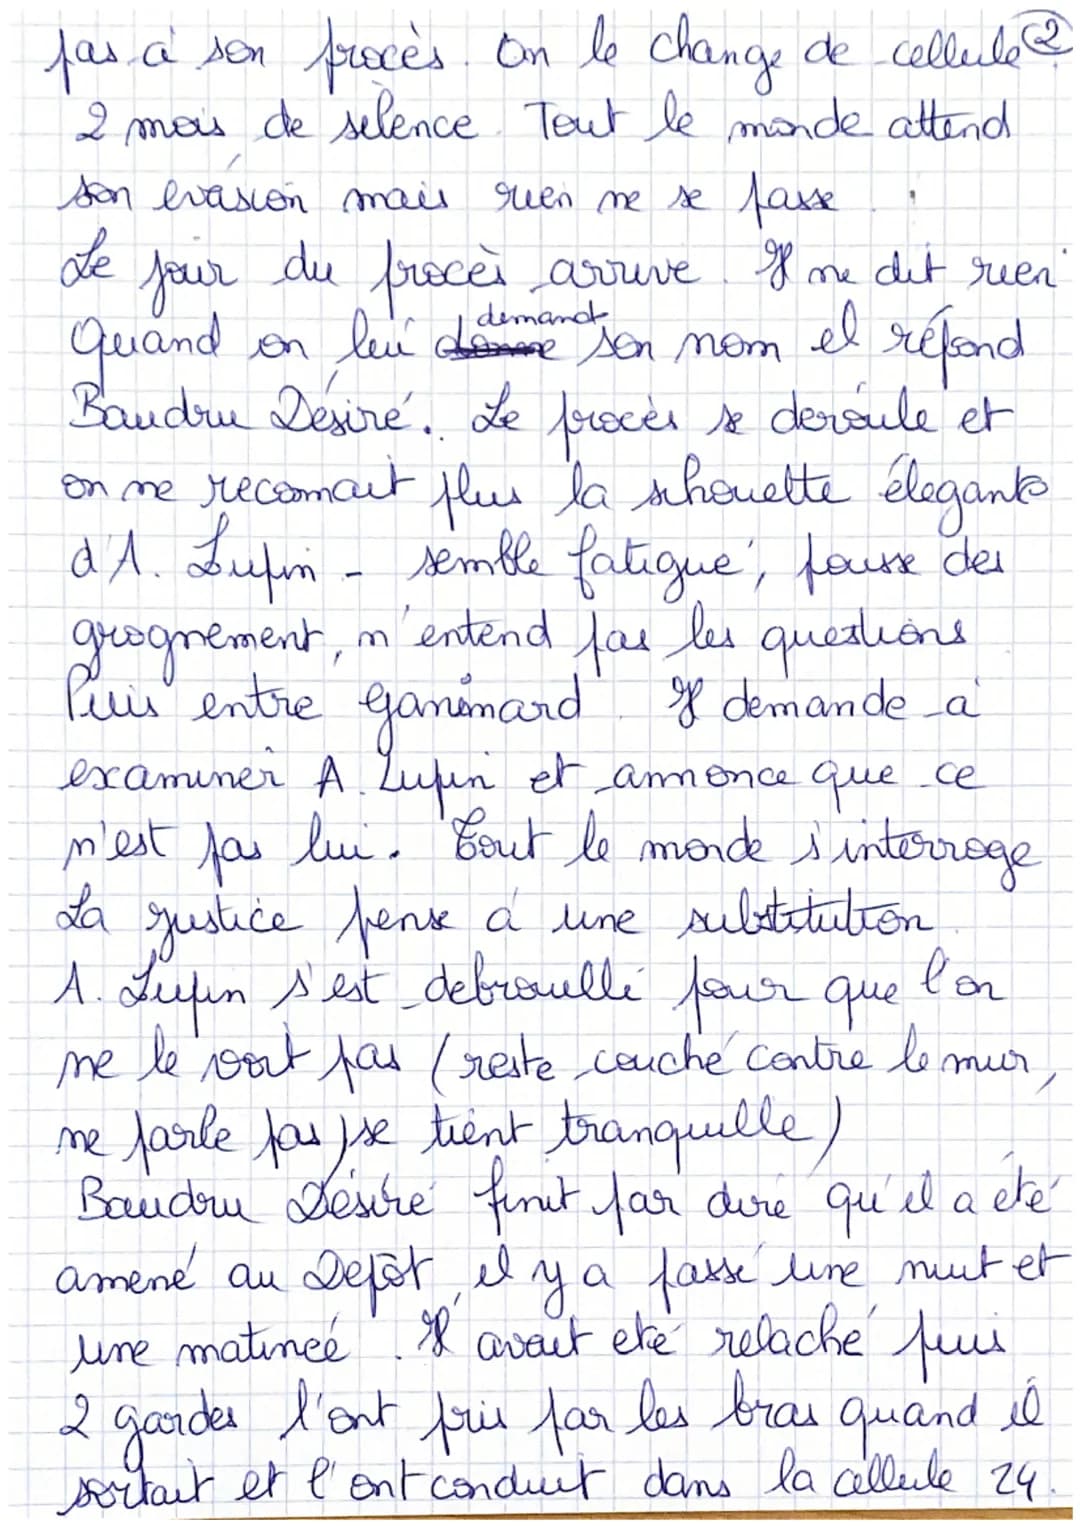 pas à son procès. On le change de cellule ②
2 mois de silence. Tout le monde attend
son évasion mais rien ne se passe.
Le jour du procès arrive. Il ne dit rien
demandt
Quand on lui donne son nom il répond
Baudru Désiré. Le procès se déroule et
on ne reconnait plus la sihouette élégante
d'A. Lupin - semble fatigué, pousse des
grognement, n'entend pas les questions
Puis entre Ganimard. Il demande à
examiner A. Lupin et annonce que ce
n'est pas lui. Tout le monde s'interroge
La justice pense à une substitution.
A. Lupin s'est debrouillé pour que l'on
ne le voit pas (reste couché contre le mur,
ne parle pas, se tient tranquille)
Baudru Désiré finit par dire qu'il a été
amené au Dépôt, il y a passé une nuit et
une matinée. Il avait eté relaché puis
2 gardes l'ont pris par les bras quand il
sortait et l'ont conduit dans la cellule 24.